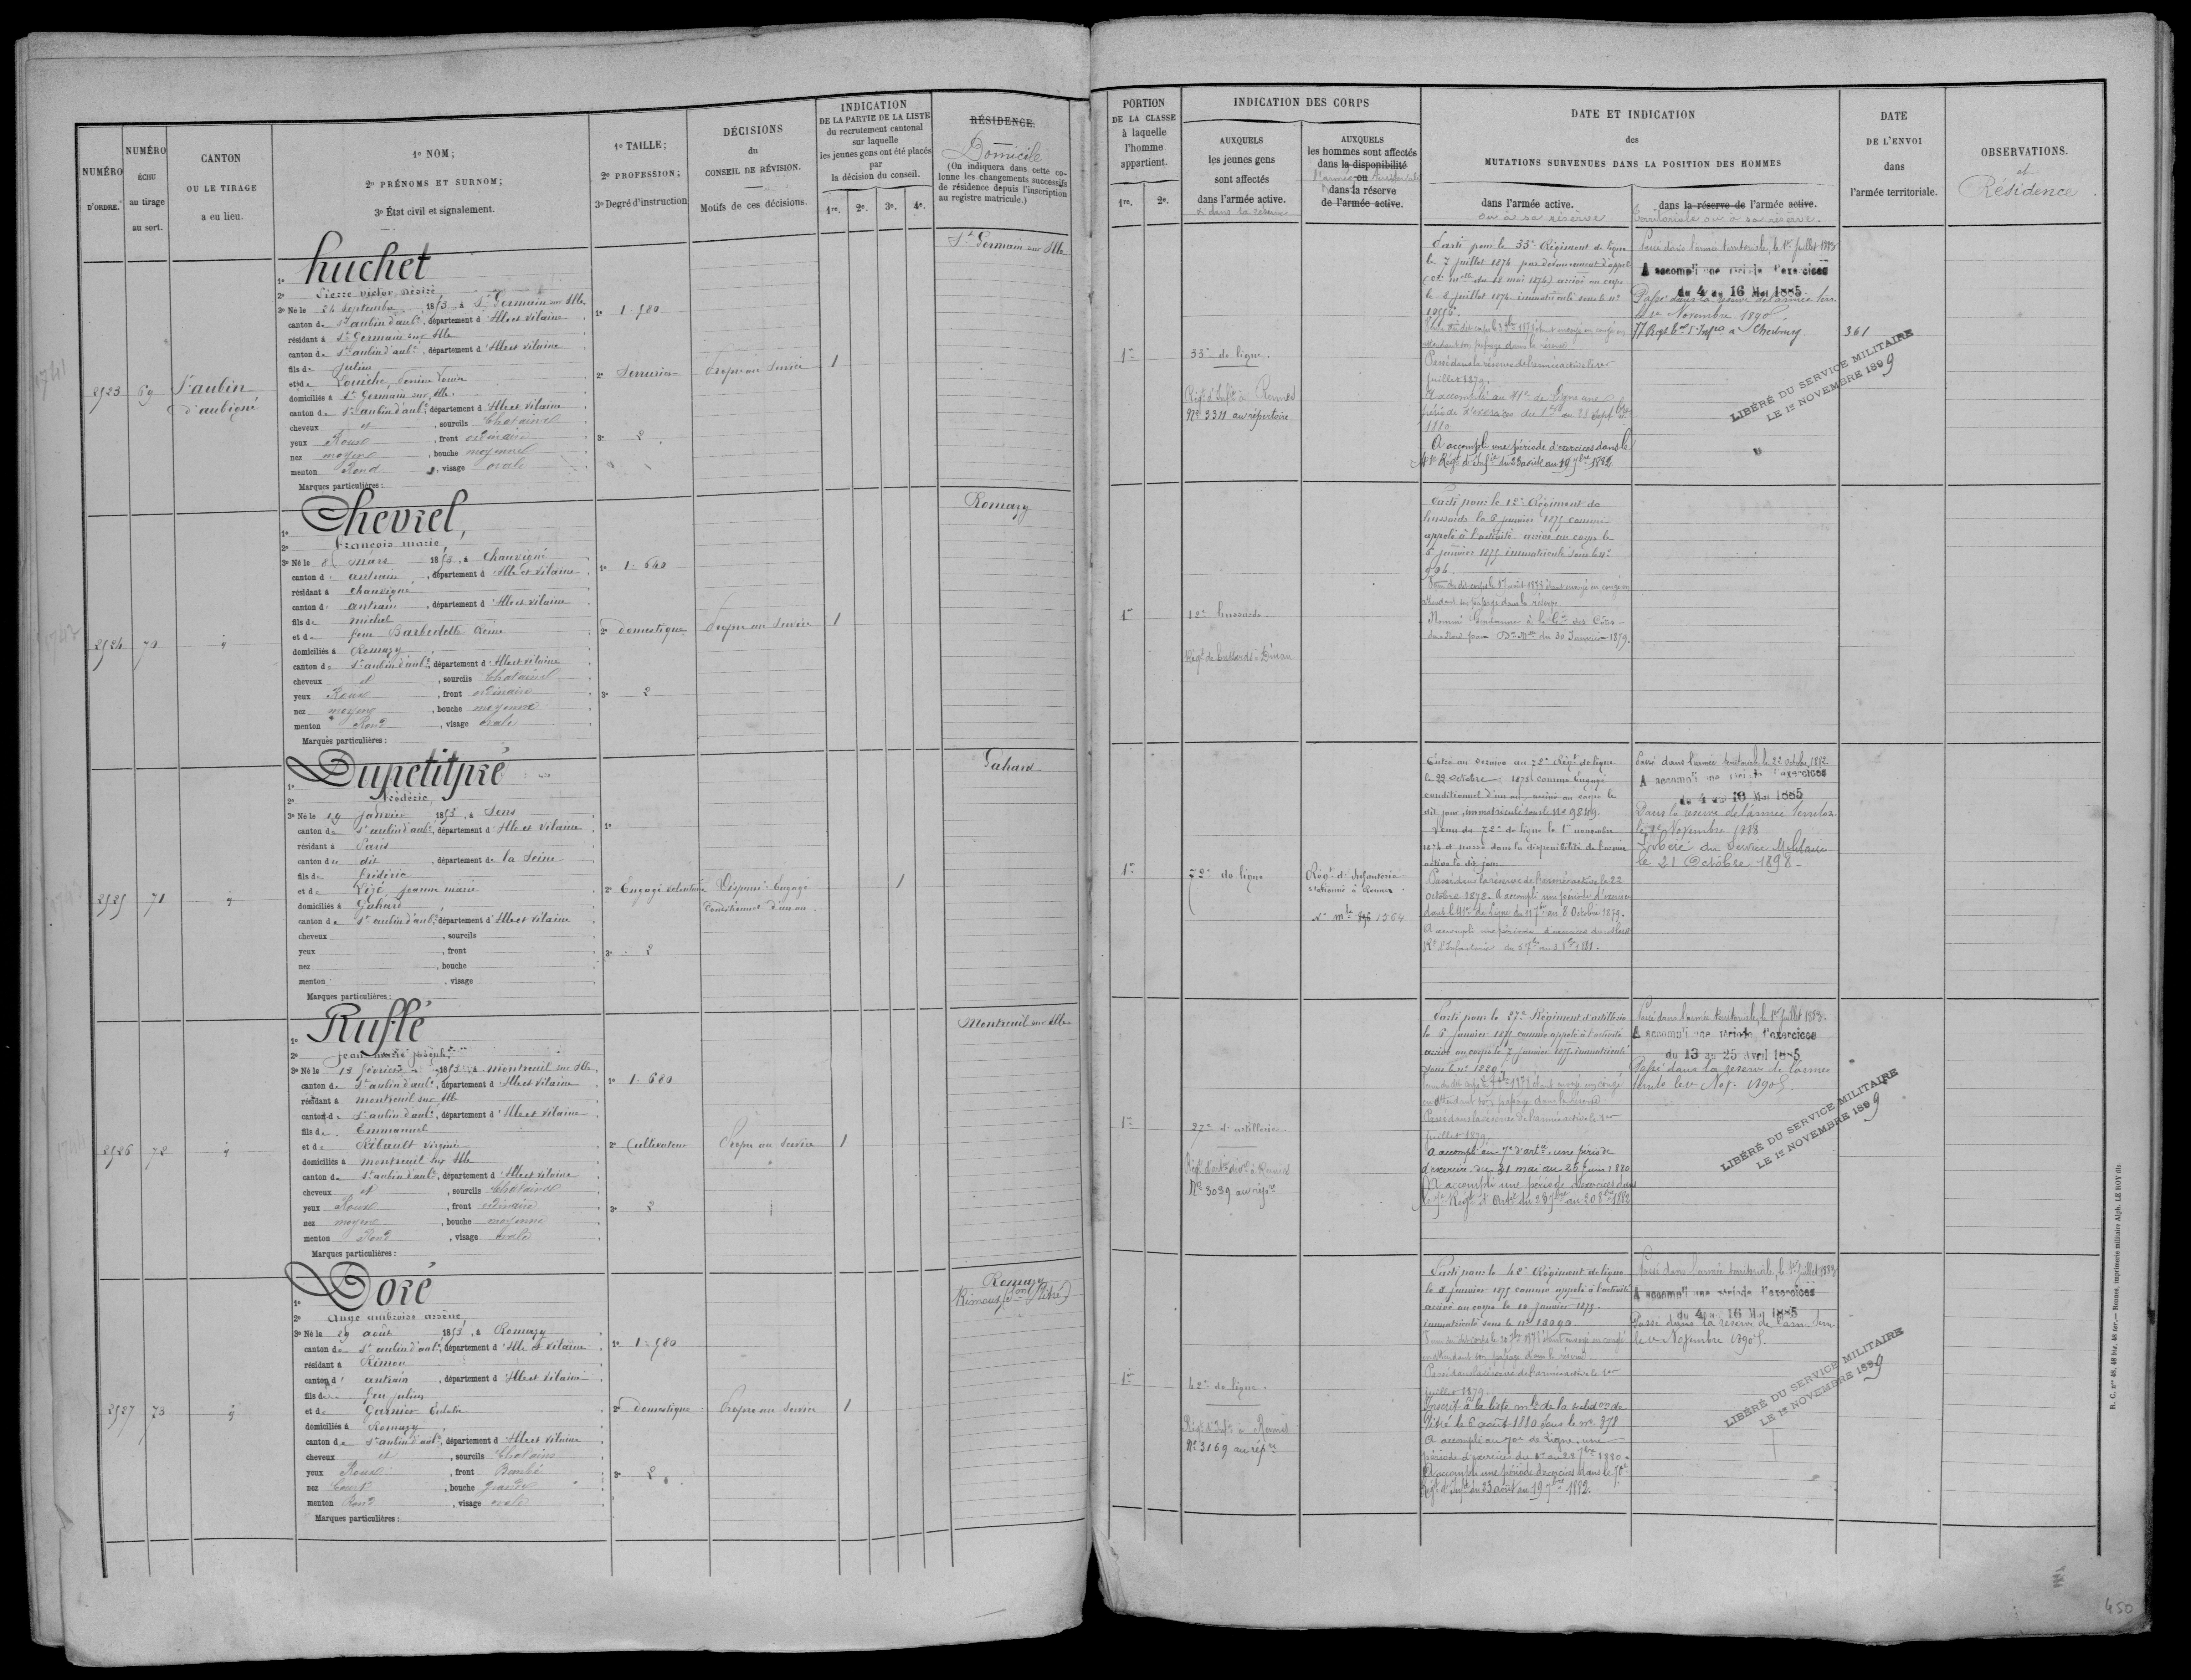 NUMÉRO
D'ORDRE.
NUMÉRO
ÉCHU
au tirage
au sort.
CANTON
OU LE TIRAGE
a eu lieu.
1º NOM;
2º PRÉNOMS ET SURNOM;
3º État civil et signalement.
1º TAILLE;
2º PROFESSION;
3º Degré d'instruction
DÉCISIONS
du
CONSEIL DE RÉVISION.
Motifs de ces décisions.
INDICATION
DE LA PARTIE DE LA LISTE
du recrutement cantonal
sur laquelle
les jeunes gens ont été placés
par
la décision du conseil.
1re. 2e. 3e. 4e.
RÉSIDENCE.
Domicile
(On indiquera dans cette co-
lonne les changements successifs
de résidence depuis l'inscription
au registre matricule.)
PORTION
DE LA CLASSE
à laquelle
l'homme
appartient.
1re. 2e.
INDICATION DES CORPS
AUXQUELS
les jeunes gens
sont affectés
dans l'armée active.
et dans la réserve
AUXQUELS
les hommes sont affectés
dans la disponibilité
ou
l'armée territoriale
dans la réserve
de l'armée active.
DATE ET INDICATION
des
MUTATIONS SURVENUES DANS LA POSITION DES HOMMES
dans l'armée active.
ou à sa réserve
dans la réserve de l'armée active.
territoriale ou à sa réserve.
DATE
DE L'ENVOI
dans
l'armée territoriale.
OBSERVATIONS.
et
Résidence.
2523
69
St aubin
d'aubigné
1º huchet
2º Pierre victor désiré
3º Né le 24 septembre 1853, à St Germain sur Ille
canton de St aubin d'aubé, département d'Ille et vilaine
résidant à St Germain sur Ille
canton de St aubin d'aubé, département d'Ille et vilaine
fils de Julien
et de
domiciliés à St Germain sur Ille
canton de St aubin d'aubé, département d'Ille et vilaine
cheveux et, sourcils Chatains
yeux Roux, front ordinaire
nez moyen, bouche moyenne
menton Rond, visage ovale
Marques particulières:
1º 1.580
2º Serrurier
3º 2
Propre au service
1
St Germain sur Ille
1re
33e de ligne.
Régt d'Infie à Rennes
Nº 3311 au répertoire
Parti pour le 33e Régiment de ligne
le 7 juillet 1874 par devancement d'appel
(Cre mlle du 12 mai 1874) arrivé au corps
le 8 juillet 1874 immatriculé sous le nº
Passé dans la réserve de l'armée active le 1er
juillet 1879.
A accompli au 41e de ligne une
période d'exercices du 1er au 28 Septbre
1880
A accompli une période d'exercices dans le
41e Régt d'Infie du 23 août au 19 7bre 1882
Passé dans l'armée territoriale, le 1er Juillet 1883
A accompli une période d'exercices
du 4 au 16 Mai 1885
Passé dans la réserve de l'armée terr.
le 1er Novembre 1890.
77 Regt tal d'Infie à Cherbourg.
361
LIBÉRÉ DU SERVICE MILITAIRE
LE 1er NOVEMBRE 1899
2524
70
1º Chevrel,
2º François marie
3º Né le 8 mars 1853, à Chauvigné
canton d' antrain, département d'Ille et vilaine
résidant à Chauvigné
canton d' antrain, département d'Ille et vilaine
fils de michel
et de feue Barbedette Reine
domiciliés à Romazy
canton de St aubin d'aubé, département d'Ille et vilaine
cheveux et, sourcils Chatains
yeux Roux, front ordinaire
nez moyen, bouche moyenne
menton Rond, visage ovale
Marques particulières:
1º 1.640
2º domestique
3º 2
Propre au service
1
Romazy
1re
12e hussards
Régt de hussards à Dinan
Parti pour le 12e Régiment de
hussards le 6 janvier 1875 comme
appelé à l'activité arrivé au corps le
6 janvier 1875 immatriculé sous le nº
Venu du dit corps le 17 août 1878 étant envoyé en congé en
attendant son passage dans la réserve
Nommé Gendarme à la Cie des Côtes-
du-Nord par Don Mlle du 30 Janvier 1879.
2525
71
1º Dupetitpré
2º frédéric,
3º Né le 19 janvier 1853, à Sens
canton de St aubin d'aubé, département d'Ille et vilaine
résidant à Paris
canton de dit, département de la Seine
fils de frédéric
et de Jeanne marie
domiciliés à Gahard
canton de St aubin d'aubé, département d'Ille et vilaine
cheveux, sourcils
yeux, front
nez, bouche
menton, visage
Marques particulières:
1º
2º Engagé volontaire
3º 2
Dispensé. Engagé
Conditionnel d'un an.
1
Gahard
1re
72e de ligne
Régt d'Infanterie
stationné à Rennes
Nº mle 1564
Entré au service au 72e Régt de ligne
le 22 octobre 1873 comme Engagé
conditionnel d'un an, arrivé au corps le
dit jour, immatriculé sous le Nº
Venu du 72e de ligne le 1er novembre
1874 et passé dans la disponibilité de l'armée
active le dit jour
Passé dans la réserve de l'armée active le 22
octobre 1878. A accompli une période d'exercices
dans le 41e de ligne du 11 7bre au 8 Octobre 1879.
A accompli une période d'exercices
Passé dans l'armée territoriale, le 22 octobre 1882
A accompli une période d'exercices
du 4 au 16 Mai 1885
Dans la réserve de l'armée territor.
le 1er Novembre 1888
Libéré du Service Militaire
le 21 Octobre 1898
2526
72
1º Rufflé
2º jean marie joseph
3º Né le 12 février 1853, à montreuil sur Ille
canton de St aubin d'aubé, département d'Ille et vilaine
résidant à montreuil sur Ille
canton de St aubin d'aubé, département d'Ille et vilaine
fils de Emmanuel
et de Ribault virginie
domiciliés à montreuil sur Ille
canton de St aubin d'aubé, département d'Ille et vilaine
cheveux et, sourcils Chatains
yeux Roux, front ordinaire
nez moyen, bouche moyenne
menton Rond, visage ovale
Marques particulières:
1º 1.680
2º Cultivateur
3º 2
Propre au service
1
Montreuil sur Ille
1re
27e d'artillerie.
Régt d'artie à Rennes
Nº 3039 au répre
Parti pour le 27e Régiment d'artillerie
le 6 janvier 1875 comme appelé à l'activité
arrivé au corps le 7 janvier 1875 immatriculé
sous le nº
en attendant son passage dans la réserve
Passé dans la réserve de l'armée active le 1er
juillet 1879.
A accompli au 7e d'artie une période
d'exercice du 31 mai au 25 Juin 1880
A accompli une période d'exercices dans
Passé dans l'armée territoriale, le 1er Juillet 1883.
A accompli une période d'exercices
du 13 au 25 Avril 1885
Passé dans la réserve de l'armée
territle le 1er Nov. 1890.
LIBÉRÉ DU SERVICE MILITAIRE
LE 1er NOVEMBRE 1899
2527
73
1º Doré
2º Ange ambroise arsène
3º Né le 29 août 1853, à Romazy
canton de St aubin d'aubé, département d'Ille et vilaine
résidant à Rimou
canton d' antrain, département d'Ille et vilaine
fils de feu julien
et de Garnier
domiciliés à Romazy
canton de St aubin d'aubé, département d'Ille et vilaine
cheveux et, sourcils Chatains
yeux Roux, front Bombé
nez Court, bouche grande
menton Rond, visage ovale
Marques particulières:
1º 1.580
2º domestique
3º 2
Propre au service
1
Romazy
Rimoux (son Vitré)
1re
42e de ligne.
Régt d'Infie à Rennes
Nº 3169 au répre
Parti pour le 42e Régiment de ligne
le 8 janvier 1875 comme appelé à l'activité
arrivé au corps le 10 janvier 1875.
immatriculé sous le nº
en attendant son passage dans la réserve.
Passé dans la réserve de l'armée active le 1er
juillet 1879.
Inscrit à la liste mle de la subdon de
Vitré le 6 août 1880 sous le nº 378
A accompli au 70e de ligne, une
période d'exercices du 1er au 28 7bre 1880.
A accompli une période d'exercices dans le 70e
Régt d'Infie du 23 août au 19 7bre 1882.
Passé dans l'armée territoriale, le 1er Juillet 1883
A accompli une période d'exercices
du 4 au 16 Mai 1885
Passé dans la réserve de l'arm. terr.
le 1er Novembre 1890.
LIBÉRÉ DU SERVICE MILITAIRE
LE 1er NOVEMBRE 1899
R. C. nos 48, 48 bis, 48 ter. — Rennes, imprimerie militaire Alph. LE ROY fils
450